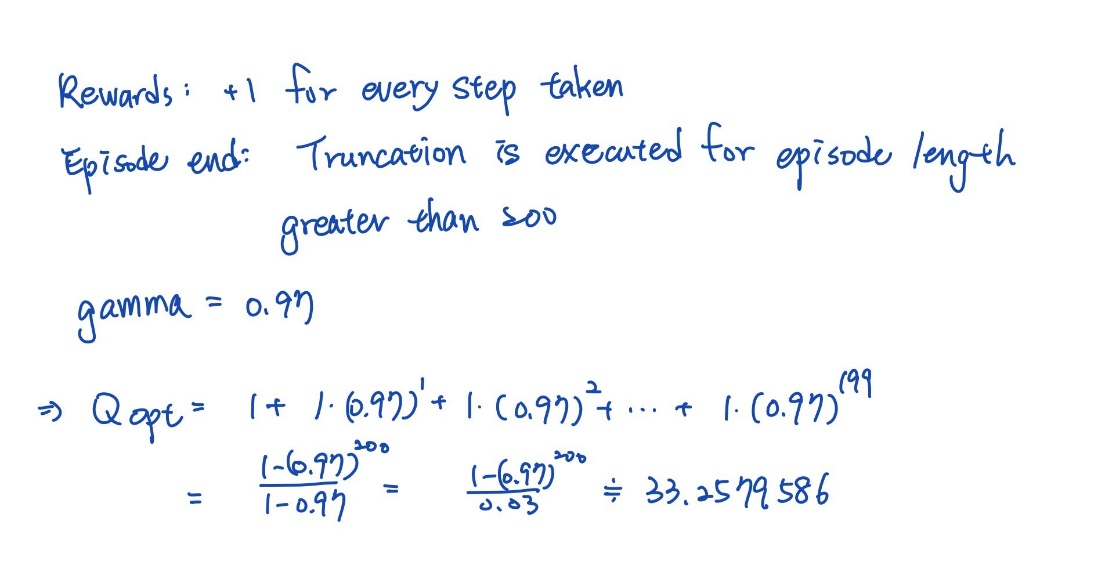 Rewards: +1 for every step taken
Episode end: Truncation is executed for episode length
greater than 200
gamma = 0.97
⇒ Q opt = 1 + 1·(0.97)^1 + 1·(0.97)^2 + ... + 1·(0.97)^199
= (1-(0.97)^200)/(1-0.97) = (1-(0.97)^200)/0.03 ≑ 33.2579586